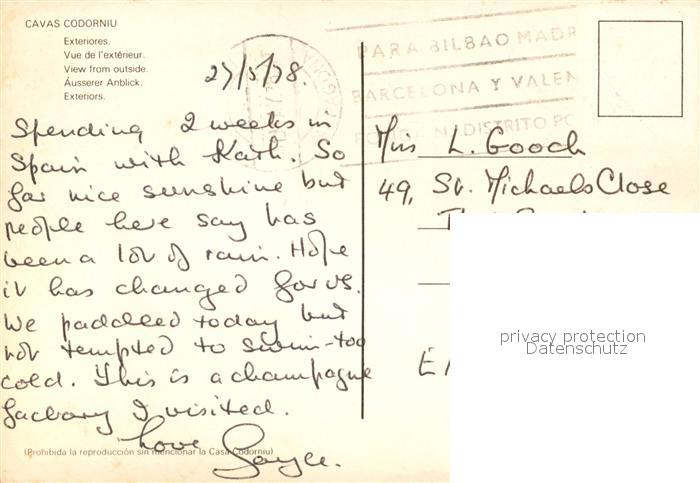 CAVAS CODORNIU
Exteriores.
Vue de l'extérieur.
View from outside.
Äusserer Anblick.
Exteriors.
27/5/78.
PARA BILBAO MADR
BARCELONA Y VALEN
DISTRITO PO
Spending 2 weeks in
Spain with Kath. So
far nice sunshine but
people here say has
been a lot of rain. Hope
it has changed for us.
We paddled today but
not tempted to swim - too
cold. This is a champagne
factory I visited.
Love Gayle.
Miss L. Gooch
49, St. Michaels Close
(Prohibida la reproducción sin mencionar la Casa Codorniu)
privacy protection
Datenschutz